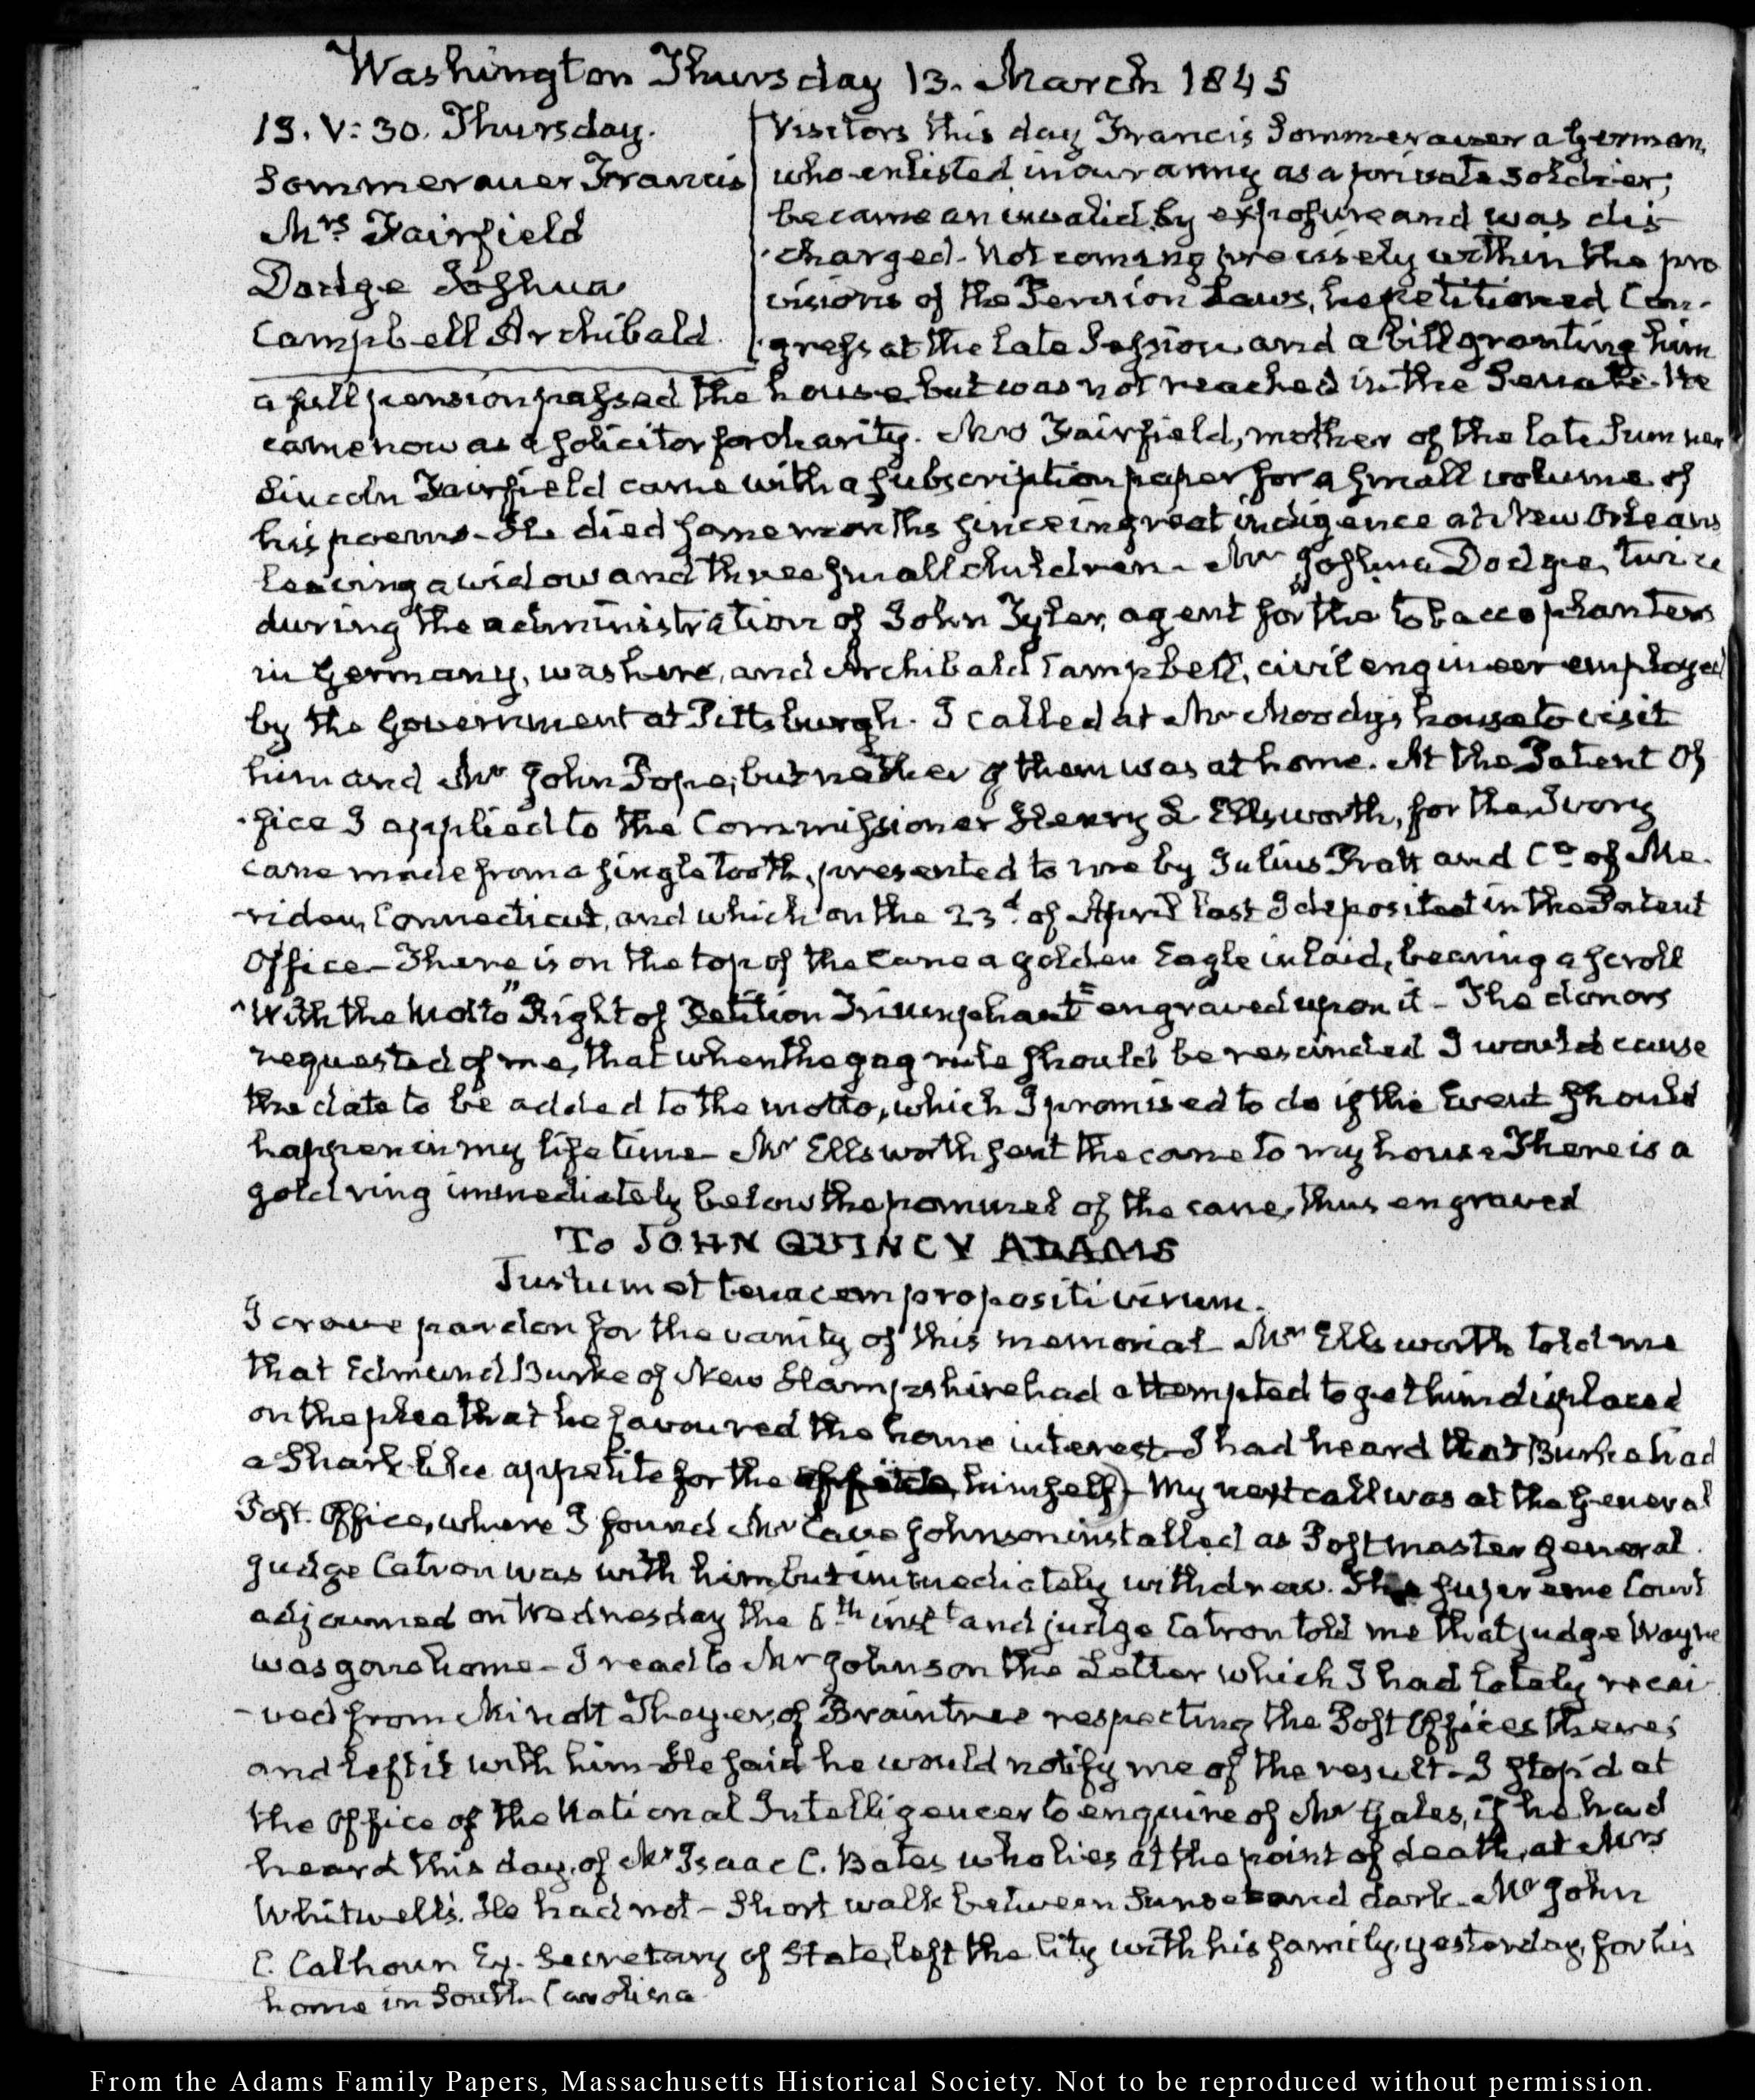 Washington Thursday 13. March 1845
13. V: 30. Thursday.
Sommerauer Francis
Mrs Fairfield
Dodge Joshua
Campbell Archibald.
Visitors this day Francis Sommerauer a German,
who enlisted in our army as a private soldier;
became an invalid by exposure and was dis
charged. Not coming precisely within the pro
visions of the Pension Laws, he petitioned Con-
gress at the late Session and a bill granting him
a full pension passed the house but was not reached in the Senate. He
came now as a solicitor for charity. Mrs Fairfield, mother of the late Sumner
Lincoln Fairfield came with a subscription paper for a small volume of
his poems. He died some months since in great indigence at New Orleans
leaving a widow and three small children. Mr Joshua Dodge, twice
during the administration of John Tyler, agent for the tobacco planters
in Germany, was here, and Archibald Campbell, civil engineer employed
by the Government at Pittsburgh. I called at Mr Moody's house to visit
him and Mr John Pope; but neither of them was at home. At the Patent Of
-fice I applied to the Commissioner Henry L Ellsworth, for the Ivory
cane made from a single tooth, presented to me by Julius Pratt and Co of Me.
-riden, Connecticut, and which on the 23d. of April last I deposited in the Patent
Office— There is on the top of the Cane a golden Eagle inlaid, bearing a scroll
With the Motto "Right of Petition Triumphant" engraved upon it— The donors
requested of me, that when the gag rule should be rescinded I would cause
the date to be added to the motto, which I promised to do if the Event should
happen in my life time— Mr Ellsworth sent the cane to my house There is a
gold ring immediately below the pommel of the cane, thus engraved
To JOHN QUINCY ADAMS
Justum et tenacem propositi virum.
I crave pardon for the vanity of this memorial— Mr Ellsworth told me
that Edmund Burke of New Hampshire had attempted to get him displaced
on the plea that he favoured the home interest— I had heard that Burke had
a Shark like appetite for the himself)— My next call was at the General
Post. Office, where I found Mr Cave Johnson installed as Postmaster general.
Judge Catron was with him, but immediately withdrew. The supreme Court
adjourned on Wednesday the 6th inst and judge Catron told me that judge Wayne
was gone home— I read to Mr Johnson the Letter which I had lately recei
-ved from Minott Thayer, of Braintree respecting the Post Offices there;
and left it with him He said he would notify me of the result— I stop'd at
the Office of the National Intelligencer to enquire of Mr Gales, if he had
heard this day, of Mr Isaac C. Bates who lies at the point of death, at Mrs
Whitwell's. He had not— Short walk between Sunset and dark— Mr John
C. Calhoun Ex. Secretary of State, left the City with his family, yesterday, for his
home in South Carolina
From the Adams Family Papers, Massachusetts Historical Society. Not to be reproduced without permission.